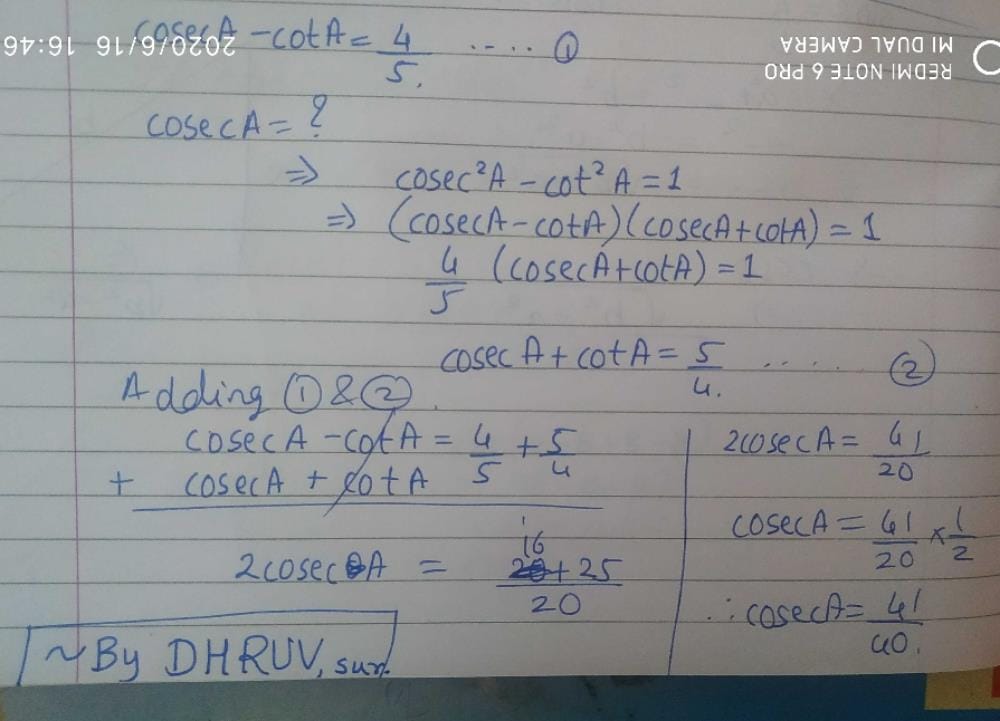 cosecA - cotA = 4/5. ..... ①
2020/6/16 16:46
REDMI NOTE 6 PRO
MI DUAL CAMERA
cosecA = ?
⇒ cosec²A - cot²A = 1
⇒ (cosecA - cotA)(cosecA + cotA) = 1
4/5 (cosecA + cotA) = 1
cosecA + cotA = 5/4. .... ②
Adding ① & ②.
cosecA - cotA = 4/5 + 5/4
+ cosecA + cotA
2cosecA = 16 + 25 / 20
2cosecA = 41/20
cosecA = 41/20 × 1/2
∴ cosecA = 41/40.
~By DHRUV,